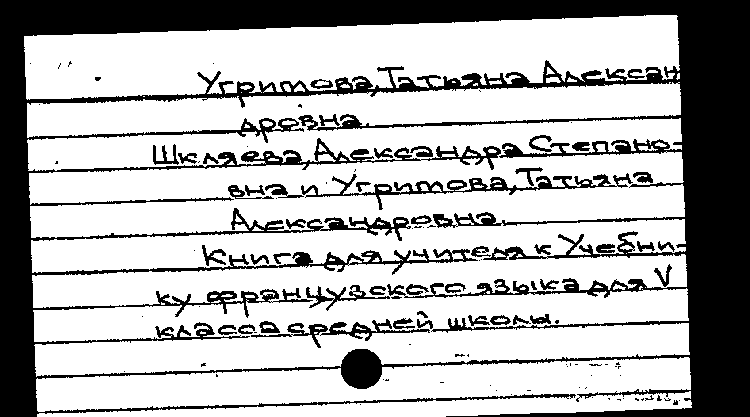 Угримова, Татьяна Алексан-
дровна.
Шкляева, Александра Степано-
вна и Угримова, Татьяна
Александровна.
Книга для учителя к Учебни-
ку французского языка для V
класса средней школы.